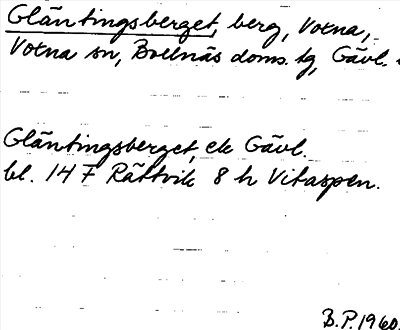 Gläntingsberget, berg, Voxna,
Voxna sn, Bollnäs doms. tg, Gävl.
Gläntingsberget, ek Gävl.
bl. 14 F Rättvik 8 h Vitaspen.
B.P. 1960.